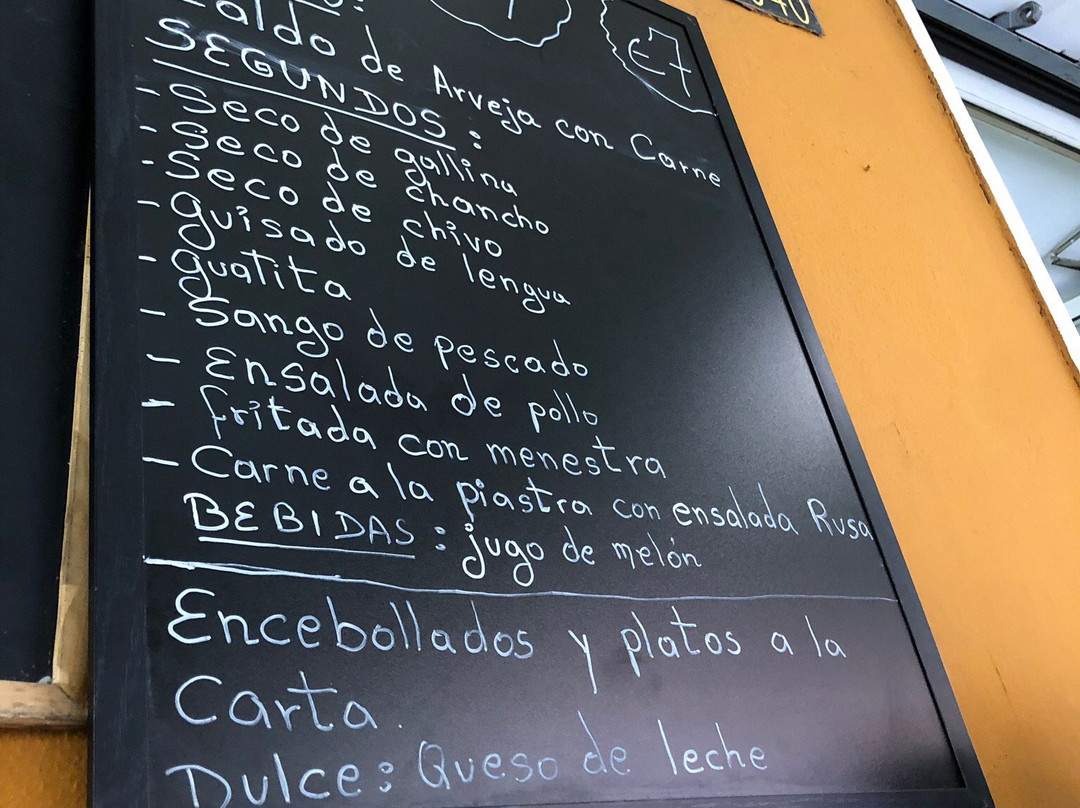 aldo de Arveja con Carne
SEGUNDOS:
- Seco de gallina
- Seco de chancho
- Seco de chivo
- guisado de lengua
- guatita
- Sango de pescado
- Ensalada de pollo
- fritada con menestra
- Carne a la piastra con ensalada Rusa
BEBIDAS: jugo de melón
Encebollados y platos a la
Carta.
DULCE: Queso de leche